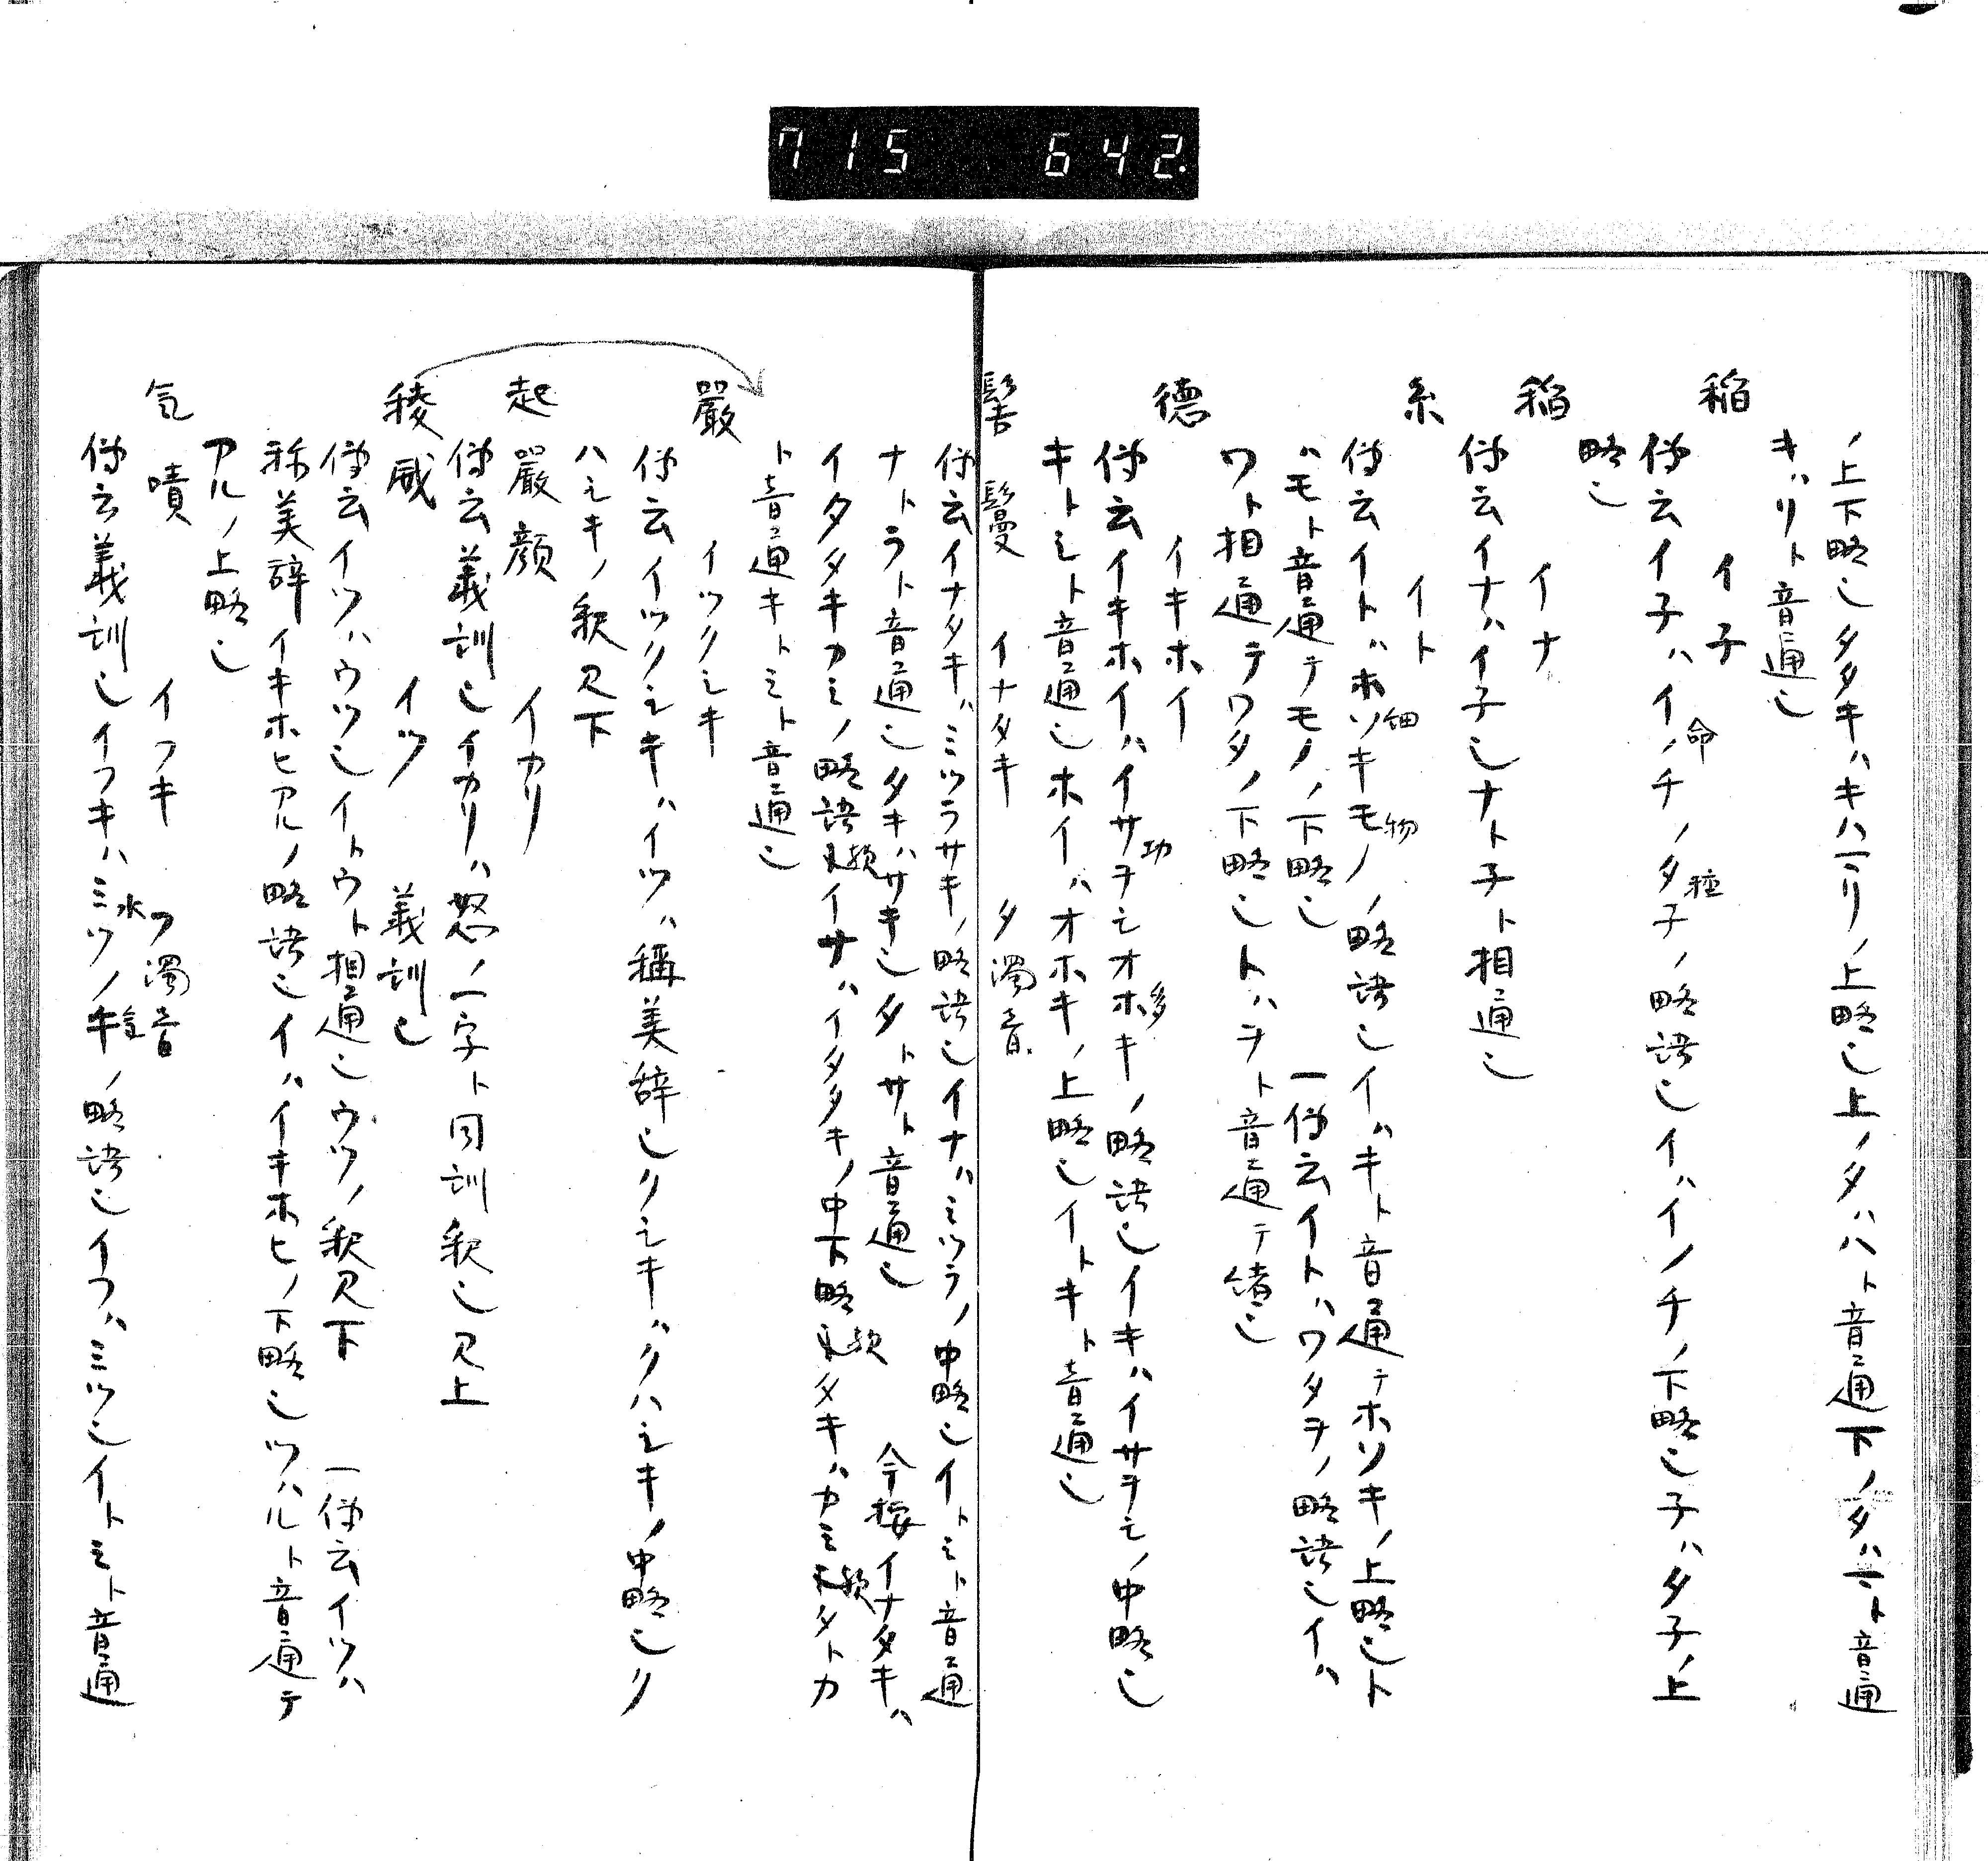 715 642.
ノ上下略也タタキハキハニリノ上略也上ノタハハト音通下ノタハニト音通
キハリト音通也
稲 イ子
伊云イ子ハイノチノタ子ノ略語也イハイノチノ下略也子ハタ子ノ上
命 種
略也
稲 イナ
伊云イナハイ子也ナト子ト相通也
糸 イト
伊云イトハホソキモノノ略語也イハキト音通テホソキノ上略也ト
細 物
ハモト音通テモノノ下略也 一伊云イトハワタヲノ略語也イハ
ワト相通テワタノ下略也トハヲト音通テ緒也
徳 イキホイ
伊云イキホイハイサヲシオホキノ略語也イキハイサヲシノ中略也
功 多
キトシト音通也ホイハオホキノ上略也イトキト音通也
髻鬘 イナタキ タ濁音
伊云イナタキハミツラサキノ略語也イナハミツラノ中略也イトミト音通
ナトラト音通也タキハサキ也タトサト音通也 今按イナタキハ
イタタキカミノ略語歟イサハイタタキノ中下略歟タキハカミ歟タトカ
ト音通キトミト音通也
嚴 イツクシキ
伊云イツクシキハイツハ稱美辞也クシキハクハシキノ中略也ク
ハシキノ釈見下
起嚴顔 イカリ
伊云義訓也イカリハ怒ノ一字ト同訓釈也見上
稜威 イツ 義訓也
伊云イツハウツ也イトウト相通也ウツノ釈見下 一伊云イツハ
称美辞イキホヒアルノ略語也イハイキホヒノ下略也ツハルト音通テ
アルノ上略也
気噴 イフキ フ濁音
伊云義訓也イフキハミツノキノ略語也イフハミツ也イトミト音通
水